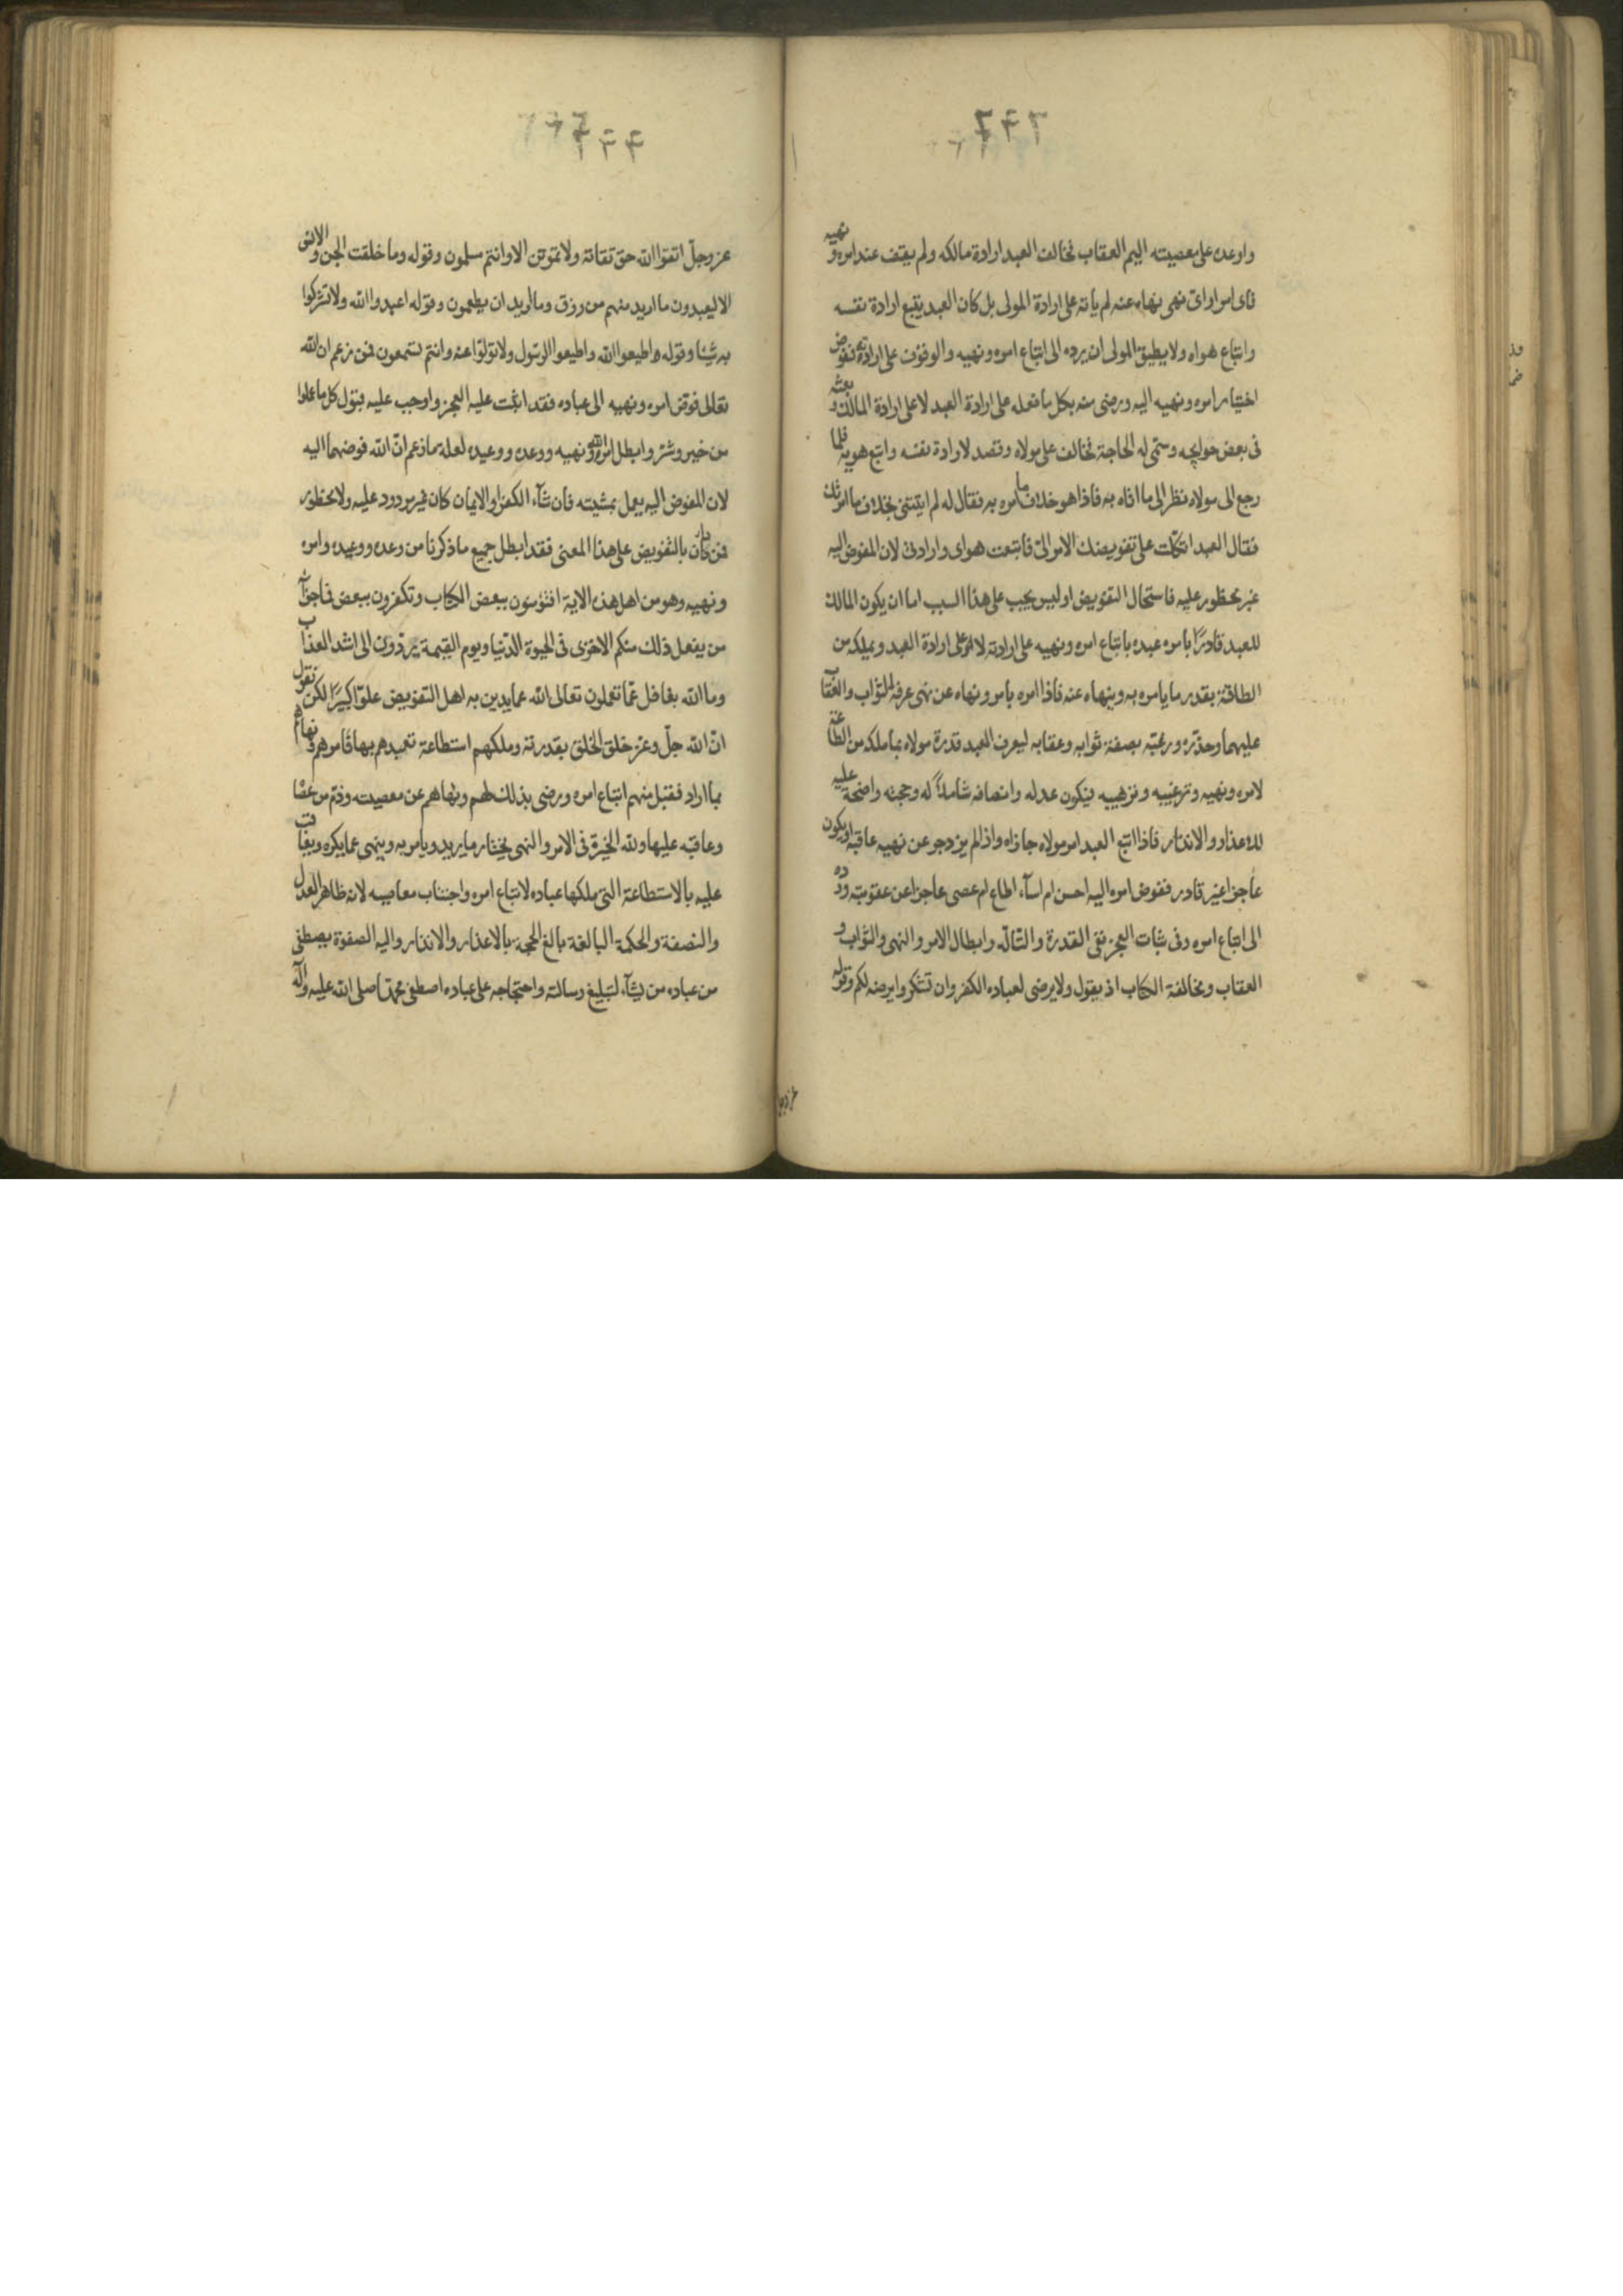 واوعده على معصيته اليم العقاب فخالف العبد ارادة مالكه ولم يقف عند امره ونهيه
فاى امر او اى نهى نهاه عنه لم ياته على ارادة المولى بل كان العبد يتبع ارادة نفسه
واتباع هواه ولا يطيق المولى ان يرده الى اتباع امره ونهيه والوقوف على ارادته ففوض
اختيار امره ونهيه اليه ورضى منه بكل ما فعله على ارادة العبد لا على ارادة المالك وبعثه
فى بعض حوايجه وسمى له الحاجة فخالف على مولاه وقصد لارادة نفسه واتبع هويه فلما
رجع الى مولاه نظر الى ما اتاه به فاذا هو خلاف ما امره به فقال له لم اتيتنى بخلاف ما امرتك
فقال العبد اتكلت على تفويضك الامر الىّ فاتبعت هواى وارادتى لان المفوض اليه
غير محظور عليه فاستحال التفويض اوليس يجب على هذا السبب اما ان يكون المالك
للعبد قادرًا يامره عبده باتباع امره ونهيه على ارادته لا على ارادة العبد ويملكه من
الطاقة بقدر ما يامره به وينهاه عنه فاذا امره بامر ونهاه عن نهى عرفه الثواب والعقاب
عليهما وحذّره ورغبّه بصفة ثوابه وعقابه ليعرف العبد قدرة مولاه بما ملكه من الطاعة
لامره ونهيه وترغيبه وترهيبه فيكون عدله وانصافه شاملاً له وحجته واضحة عليه
للاعذار والانذار فاذا اتبع العبد امر مولاه جازاه واذا لم يزدجر عن نهيه عاقبه او يكون
عاجزا غير قادر ففوض امره اليه احسن ام اسآء اطاع ام عصى عاجزا عن عقوبته ورده
الى اتباع امره وفى ثبات العجز نفى القدرة والتألّه وابطال الامر والنهى والثواب و
العقاب ومخالفة الكتاب اذ يقول ولا يرضى لعباده الكفر وان تشكروا يرضه لكم وقوله
عز وجلّ اتقوا الله حق تقاته ولا تموتن الا وانتم مسلمون وقوله وما خلقت الجن والانس
الا ليعبدون ما اريد منهم من رزق وما اريد ان يطعمون وقوله اعبدوا الله ولا تشركوا
به شيئا وقوله واطيعوا الله واطيعوا الرسول ولا تولوّا عنه وانتم تسمعون فمن زعم ان الله
تعالى فوّض امره ونهيه الى عباده فقد اثبت عليه العجز واوجب عليه قبول كل ما عملوا
من خير وشرّ وابطل امر الله ونهيه ووعده ووعيده لعلة ما زعم انّ الله فوضهما اليه
لان المفوض اليه يعمل بمشيته فان شآء الكفر او الايمان كان غير مردود عليه ولا محظور
فمن دان بالتفويض على هذا المعنى فقد ابطل جميع ما ذكرنا من وعده ووعيده وامره
ونهيه وهو من اهل هذه الاية افتؤمنون ببعض الكتاب وتكفرون ببعض فما جزآء
من يفعل ذلك منكم الا خزى فى الحيوة الدّنيا ويوم القيمة يردّون الى اشد العذاب
وما الله بغافل عمّا تعملون تعالى الله عما يدين به اهل التفويض علوّا كبيرًا لكن نقول
انّ الله جلّ وعزّ خلق الخلق بقدرته وملكهم استطاعة تعبدهم بها فامرهم ونهاهم
بما اراد فقبل منهم اتباع امره ورضى بذلك لهم ونهاهم عن معصيته وذم من عصاه
وعاقبه عليها ولله الخيرة فى الامر والنهى يختار ما يريد ويامر به وينهى عما يكره ويعاقب
عليه بالاستطاعة التى ملكها عباده لاتباع امره واجتناب معاصيه لانه ظاهر العدل
والنصفة والحكمة البالغة بالغ الحجة بالاعذار والانذار واليه الصفوة يصطفى
من عباده من يشآء لتبليغ رسالته واحتجاجه على عباده اصطفى محمّدا صلى الله عليه وآله